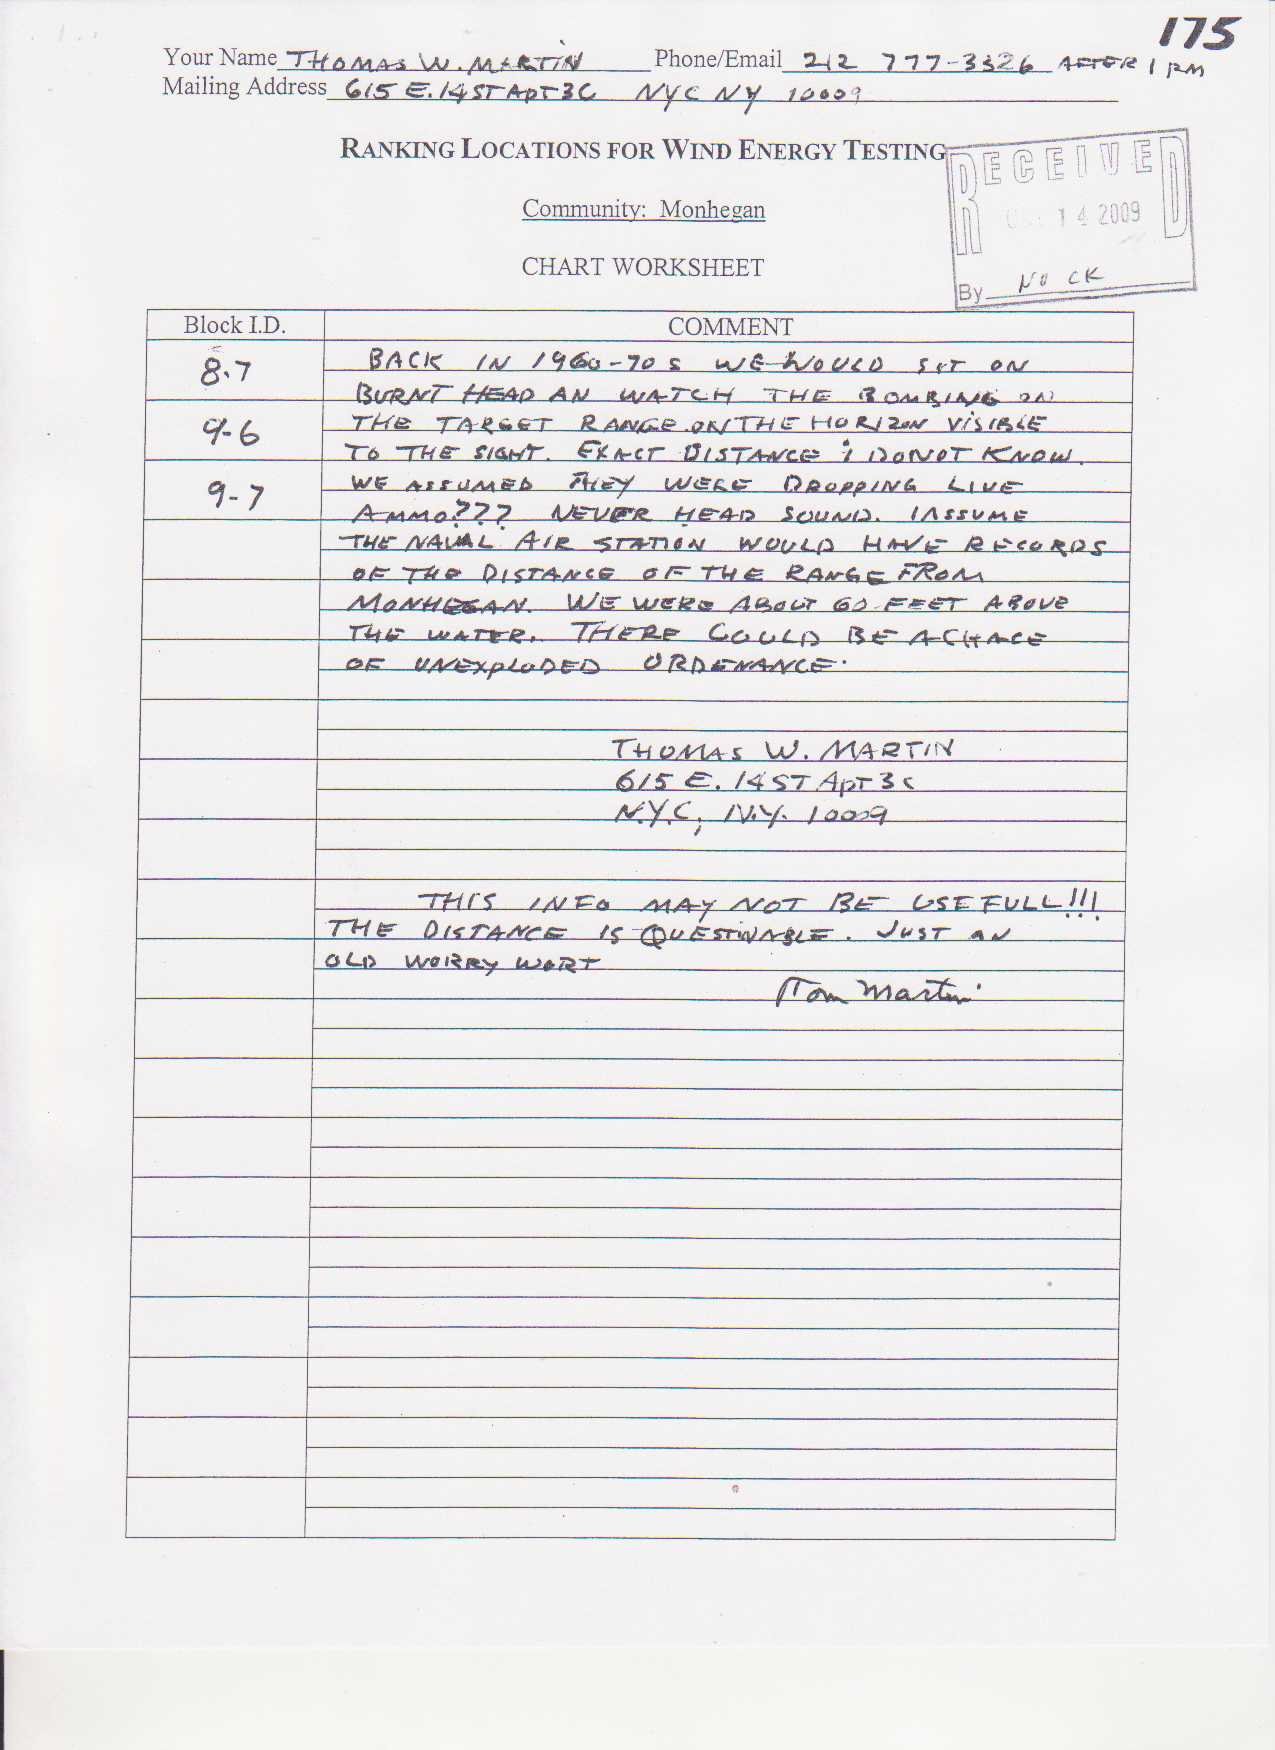 175
Your Name THOMAS W. MARTIN Phone/Email 212 777-3326 AFTER 1 PM
Mailing Address 615 E. 14ST APT 3C NYC NY 10009
RANKING LOCATIONS FOR WIND ENERGY TESTING
Community: Monhegan
CHART WORKSHEET
RECEIVED
14 2009
By NO CK
Block I.D. COMMENT
8.7 BACK IN 1960-70S WE WOULD SIT ON
BURNT HEAD AN WATCH THE BOMBING ON
9-6 THE TARGET RANGE ON THE HORIZON VISIBLE
TO THE SIGHT. EXACT DISTANCE I DONOT KNOW.
9-7 WE ASSUMED THEY WERE DROPPING LIVE
AMMO??? NEVER HEAD SOUND. I ASSUME
THE NAVAL AIR STATION WOULD HAVE RECORDS
OF THE DISTANCE OF THE RANGE FROM
MONHEGAN. WE WERE ABOUT 60 FEET ABOVE
THE WATER. THERE COULD BE A CHACE
OF UNEXPLODED ORDENANCE.
THOMAS W. MARTIN
615 E. 14 ST APT 3C
N.Y.C, N.Y. 10009
THIS INFO MAY NOT BE USEFULL!!!
THE DISTANCE IS QUESTINABLE. JUST AN
OLD WORRY WORT
Tom Martin